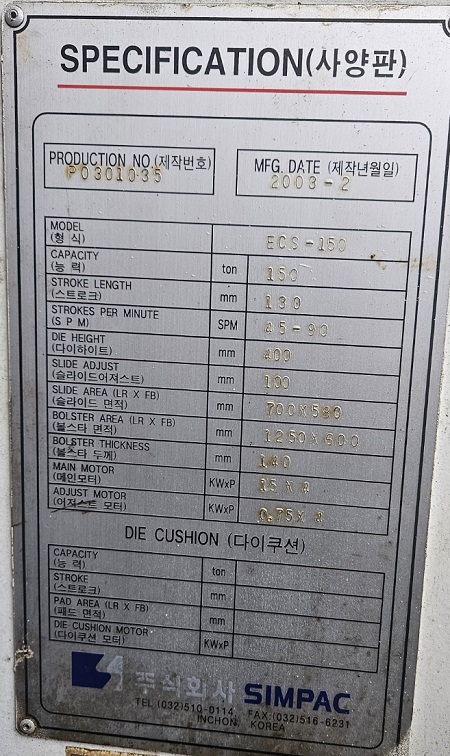 SPECIFICATION(사양판)
PRODUCTION NO.(제작번호)
P0301035
MFG. DATE (제작년월일)
2003-2
MODEL
(형 식) ECS-150
CAPACITY
(능 력) ton 150
STROKE LENGTH
(스트로크) mm 130
STROKES PER MINUTE
(S P M) SPM 45-90
DIE HEIGHT
(다이하이트) mm 400
SLIDE ADJUST
(슬라이드어져스트) mm 100
SLIDE AREA (LR X FB)
(슬라이드 면적) mm 700X580
BOLSTER AREA (LR X FB)
(볼스타 면적) mm 1250X600
BOLSTER THICKNESS
(볼스타 두께) mm 140
MAIN MOTOR
(메인모터) KWxP 15 X 4
ADJUST MOTOR
(어져스트 모터) KWxP 0.75X 4
DIE CUSHION (다이쿠션)
CAPACITY
(능 력) ton
STROKE
(스트로크) mm
PAD AREA (LR X FB)
(패드 면적) mm
DIE CUSHION MOTOR
(다이쿠션 모터) KWxP
주식회사 SIMPAC
TEL (032)510-0114 FAX:(032)516-6231
INCHON KOREA